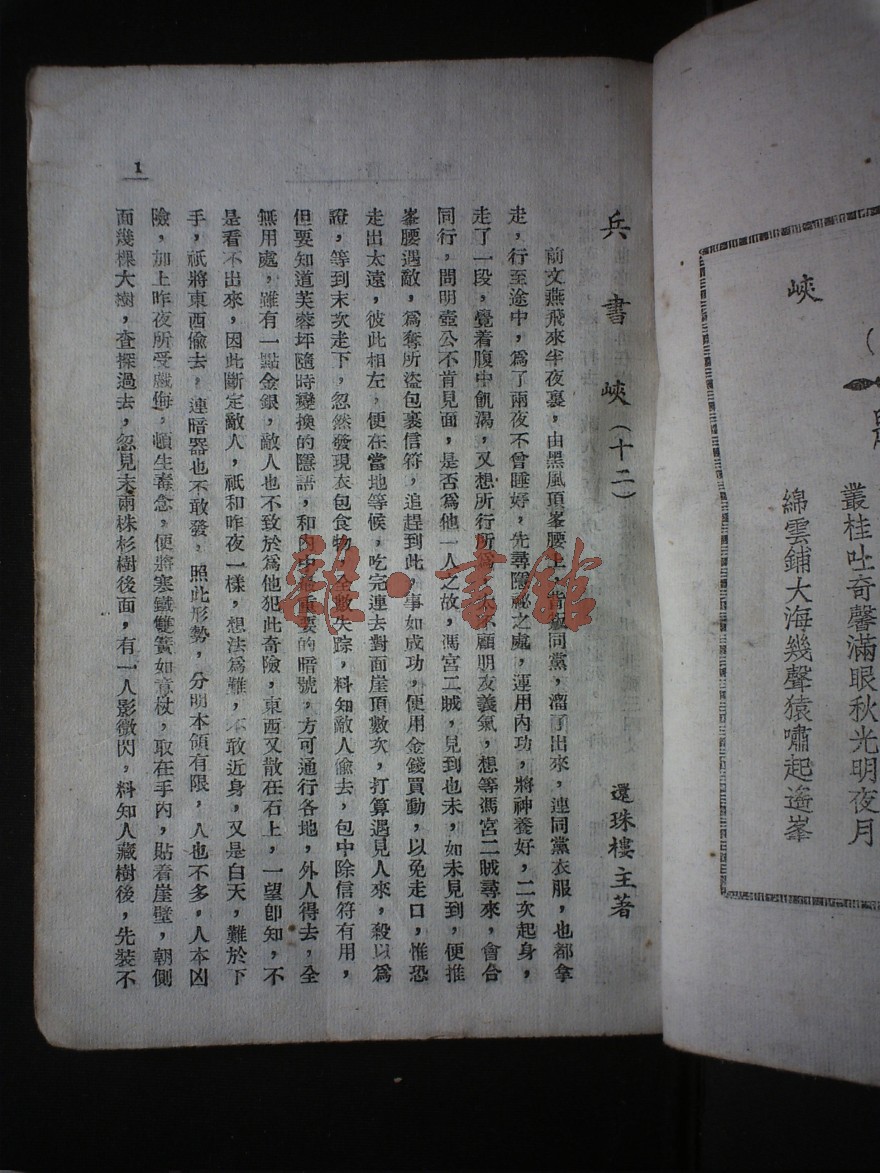 峽
叢桂吐奇馨滿眼秋光明夜月
綿雲鋪大海幾聲猿嘯起遙峯
兵書峽(十二)
還珠樓主著
前文燕飛來半夜裏,由黑風頂峯腰上,背同黨,溜了出來,連同黨衣服,也都拿
走,行至途中,爲了兩夜不曾睡好,先尋隱祕之處,運用內功,將神養好,二次起身,
走了一段,覺着腹中飢渴,又想所行所爲,不顧朋友義氣,想等馮宮二賊尋來,會合
同行,問明壺公不肯見面,是否爲他一人之故,馮宮二賊,見到也未,如未見到,便推
峯腰遇敵,爲奪所盜包裹信符,追趕到此,事如成功,便用金錢買動,以免走口,惟恐
走出太遠,彼此相左,便在當地等候,吃完連去對面崖頂數次,打算遇見人來,殺以爲
證,等到末次走下,忽然發現衣包食物,全數失踪,料知敵人偷去,包中除信符有用,
但要知道芙蓉坪隨時變換的隱語,和內中最重要的暗號,方可通行各地,外人得去,全
無用處,雖有一點金銀,敵人也不致於爲他犯此奇險,東西又散在石上,一望卽知,不
是看不出來,因此斷定敵人,祇和昨夜一樣,想法爲難,不敢近身,又是白天,難於下
手,祇將東西偷去,連暗器也不敢發,照此形勢,分明本領有限,人也不多,人本凶
險,加上昨夜所受戲侮,頓生毒念,便將寒鐵雙簧如意杖,取在手內,貼着崖壁,朝側
面幾棵大樹,查探過去,忽見末兩株杉樹後面,有一人影微閃,料知人藏樹後,先裝不
1
雜·書館